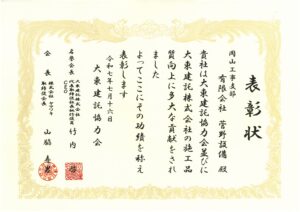 表彰状
岡山工事支部
有限会社 菅野設備 殿
貴社は大東建託協力会並びに
大東建託株式会社の施工品
質向上に多大な貢献をされ
ました
よってここにその功績を称え
表彰します
令和七年七月十六日
大東建託協力会
名誉会長
大東建託株式会社
代表取締役社長執行役員
CEO
竹内 啓
会長
株式会社
取締役会長
山脇